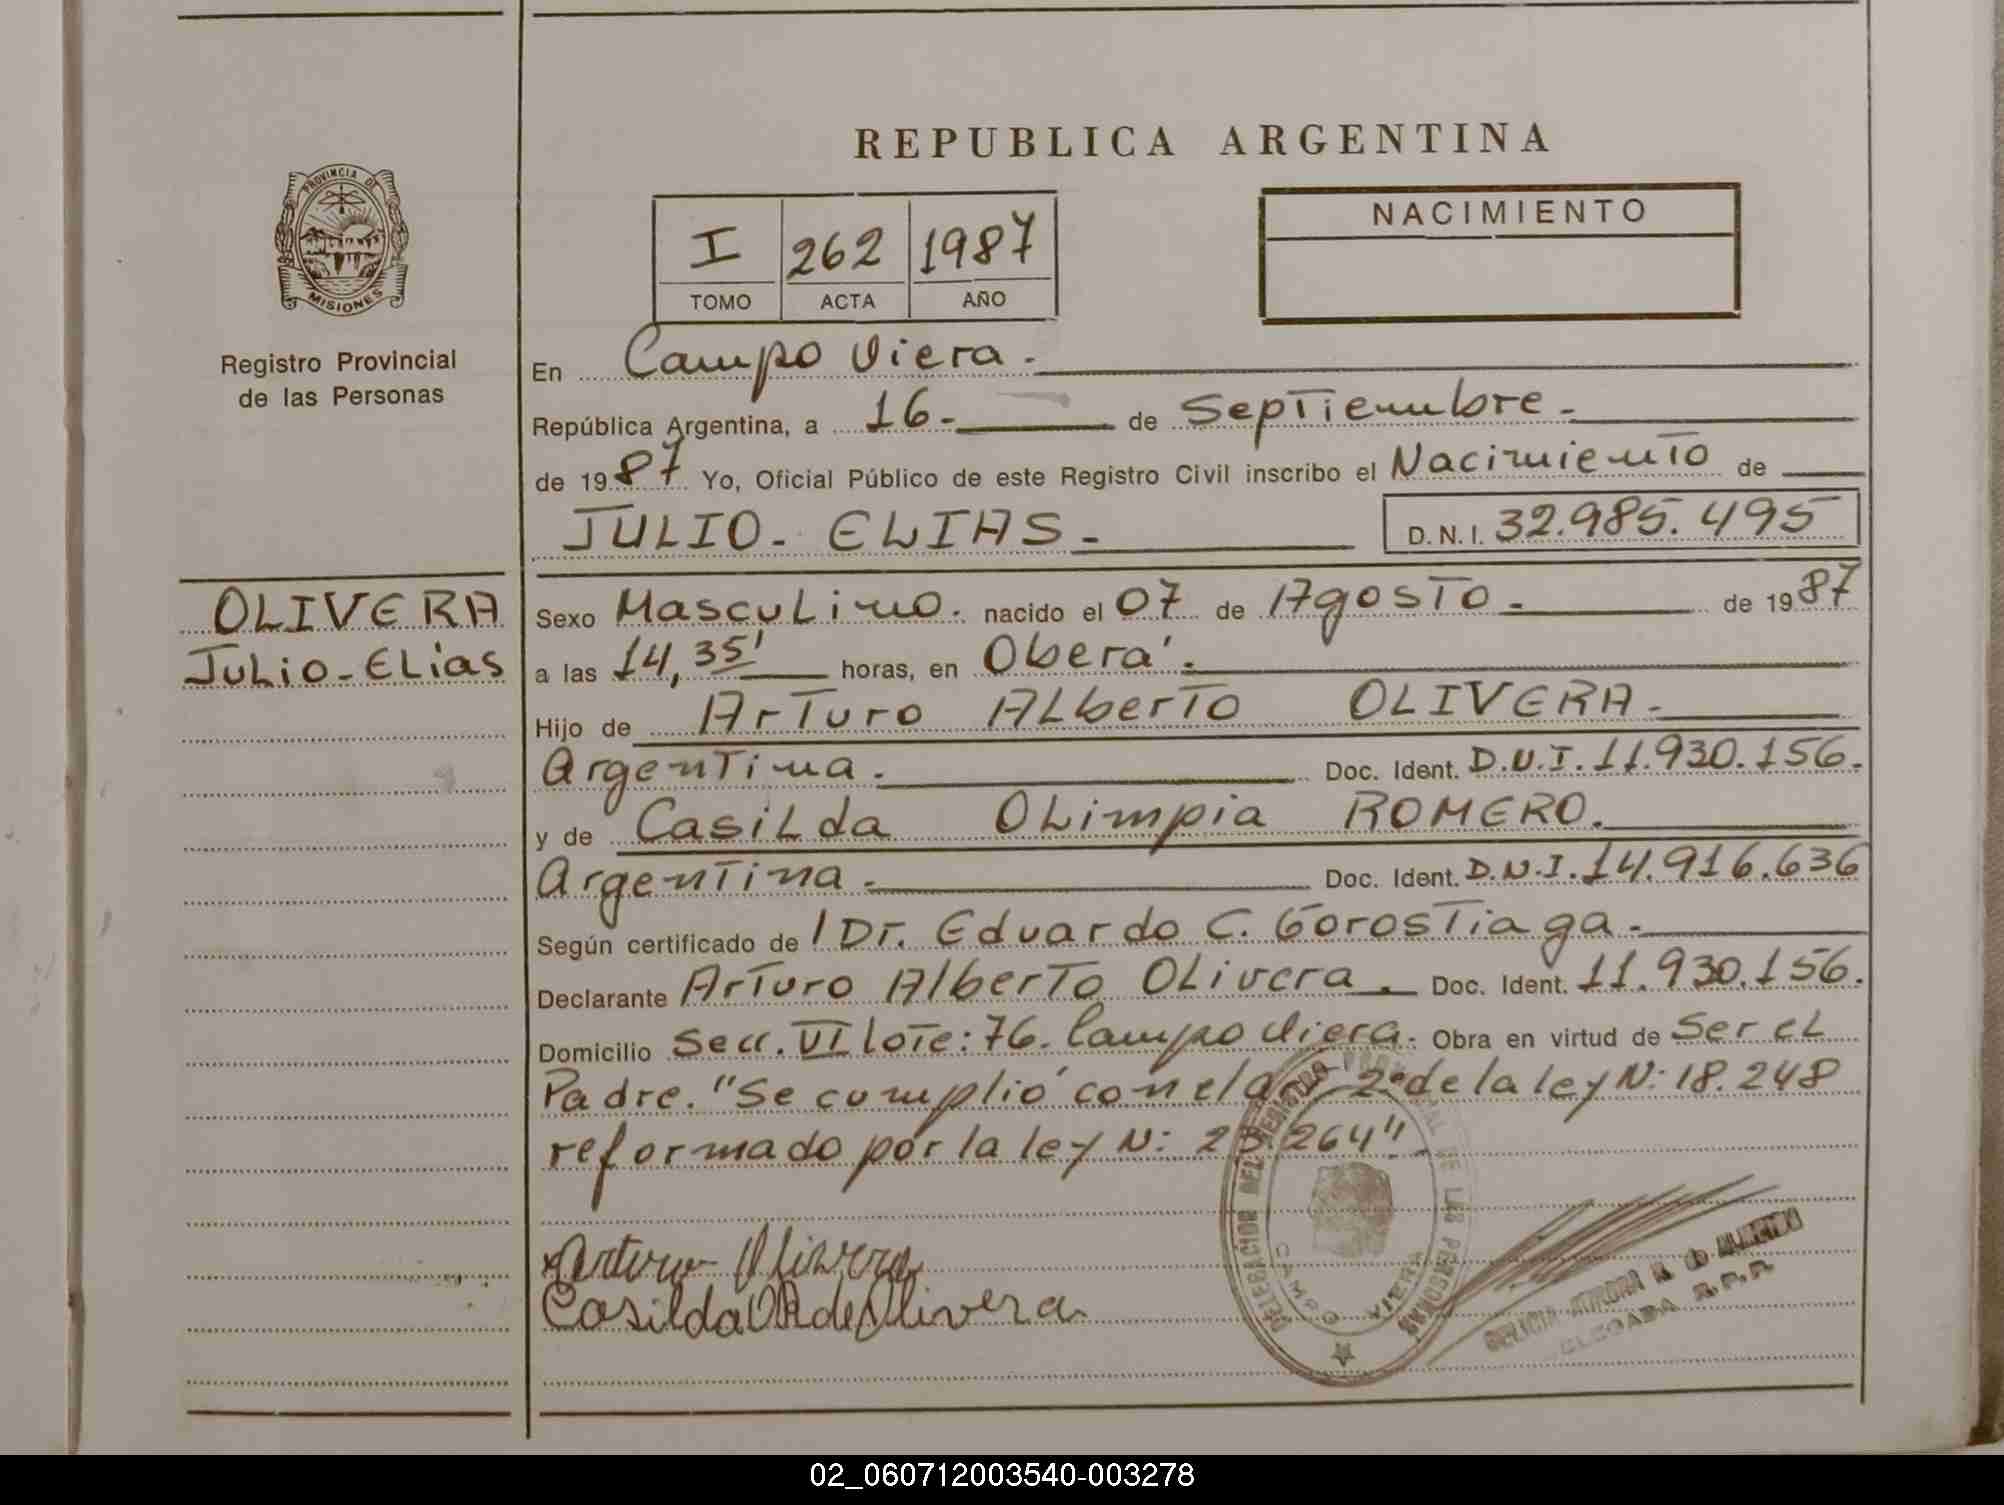 REPUBLICA ARGENTINA
PROVINCIA DE
MISIONES
Registro Provincial
de las Personas
I 262 1987
TOMO ACTA AÑO
NACIMIENTO
En Campo Viera.
República Argentina, a 16. de Septiembre.
de 1987 Yo, Oficial Público de este Registro Civil inscribo el Nacimiento de
JULIO. ELIAS. D. N. I. 32.985.495
OLIVERA
Julio-Elias
Sexo Masculino. nacido el 07 de Agosto. de 1987
a las 14,35' horas, en Oberá.
Hijo de Arturo Alberto OLIVERA.
Argentina. Doc. Ident. D.N.I. 11.930.156.
y de Casilda Olimpia ROMERO.
Argentina. Doc. Ident. D.N.I. 14.916.636
Según certificado de / Dr. Eduardo C. Gorostiaga.
Declarante Arturo Alberto Olivera. Doc. Ident. 11.930.156.
Domicilio Secc. VI lote: 76. Campo Viera. Obra en virtud de Ser el
Padre. "Se cumplió con el Art 2° de la ley N: 18.248
reformado por la ley N: 23.264".
Arturo Olivera
Casilda OR de Olivera
DELEGACION DEL REGISTRO PROVINCIAL DE LAS PERSONAS
CAMPO VIERA
DELICIA AURORA
DELEGADA R.P.P.
02_060712003540-003278